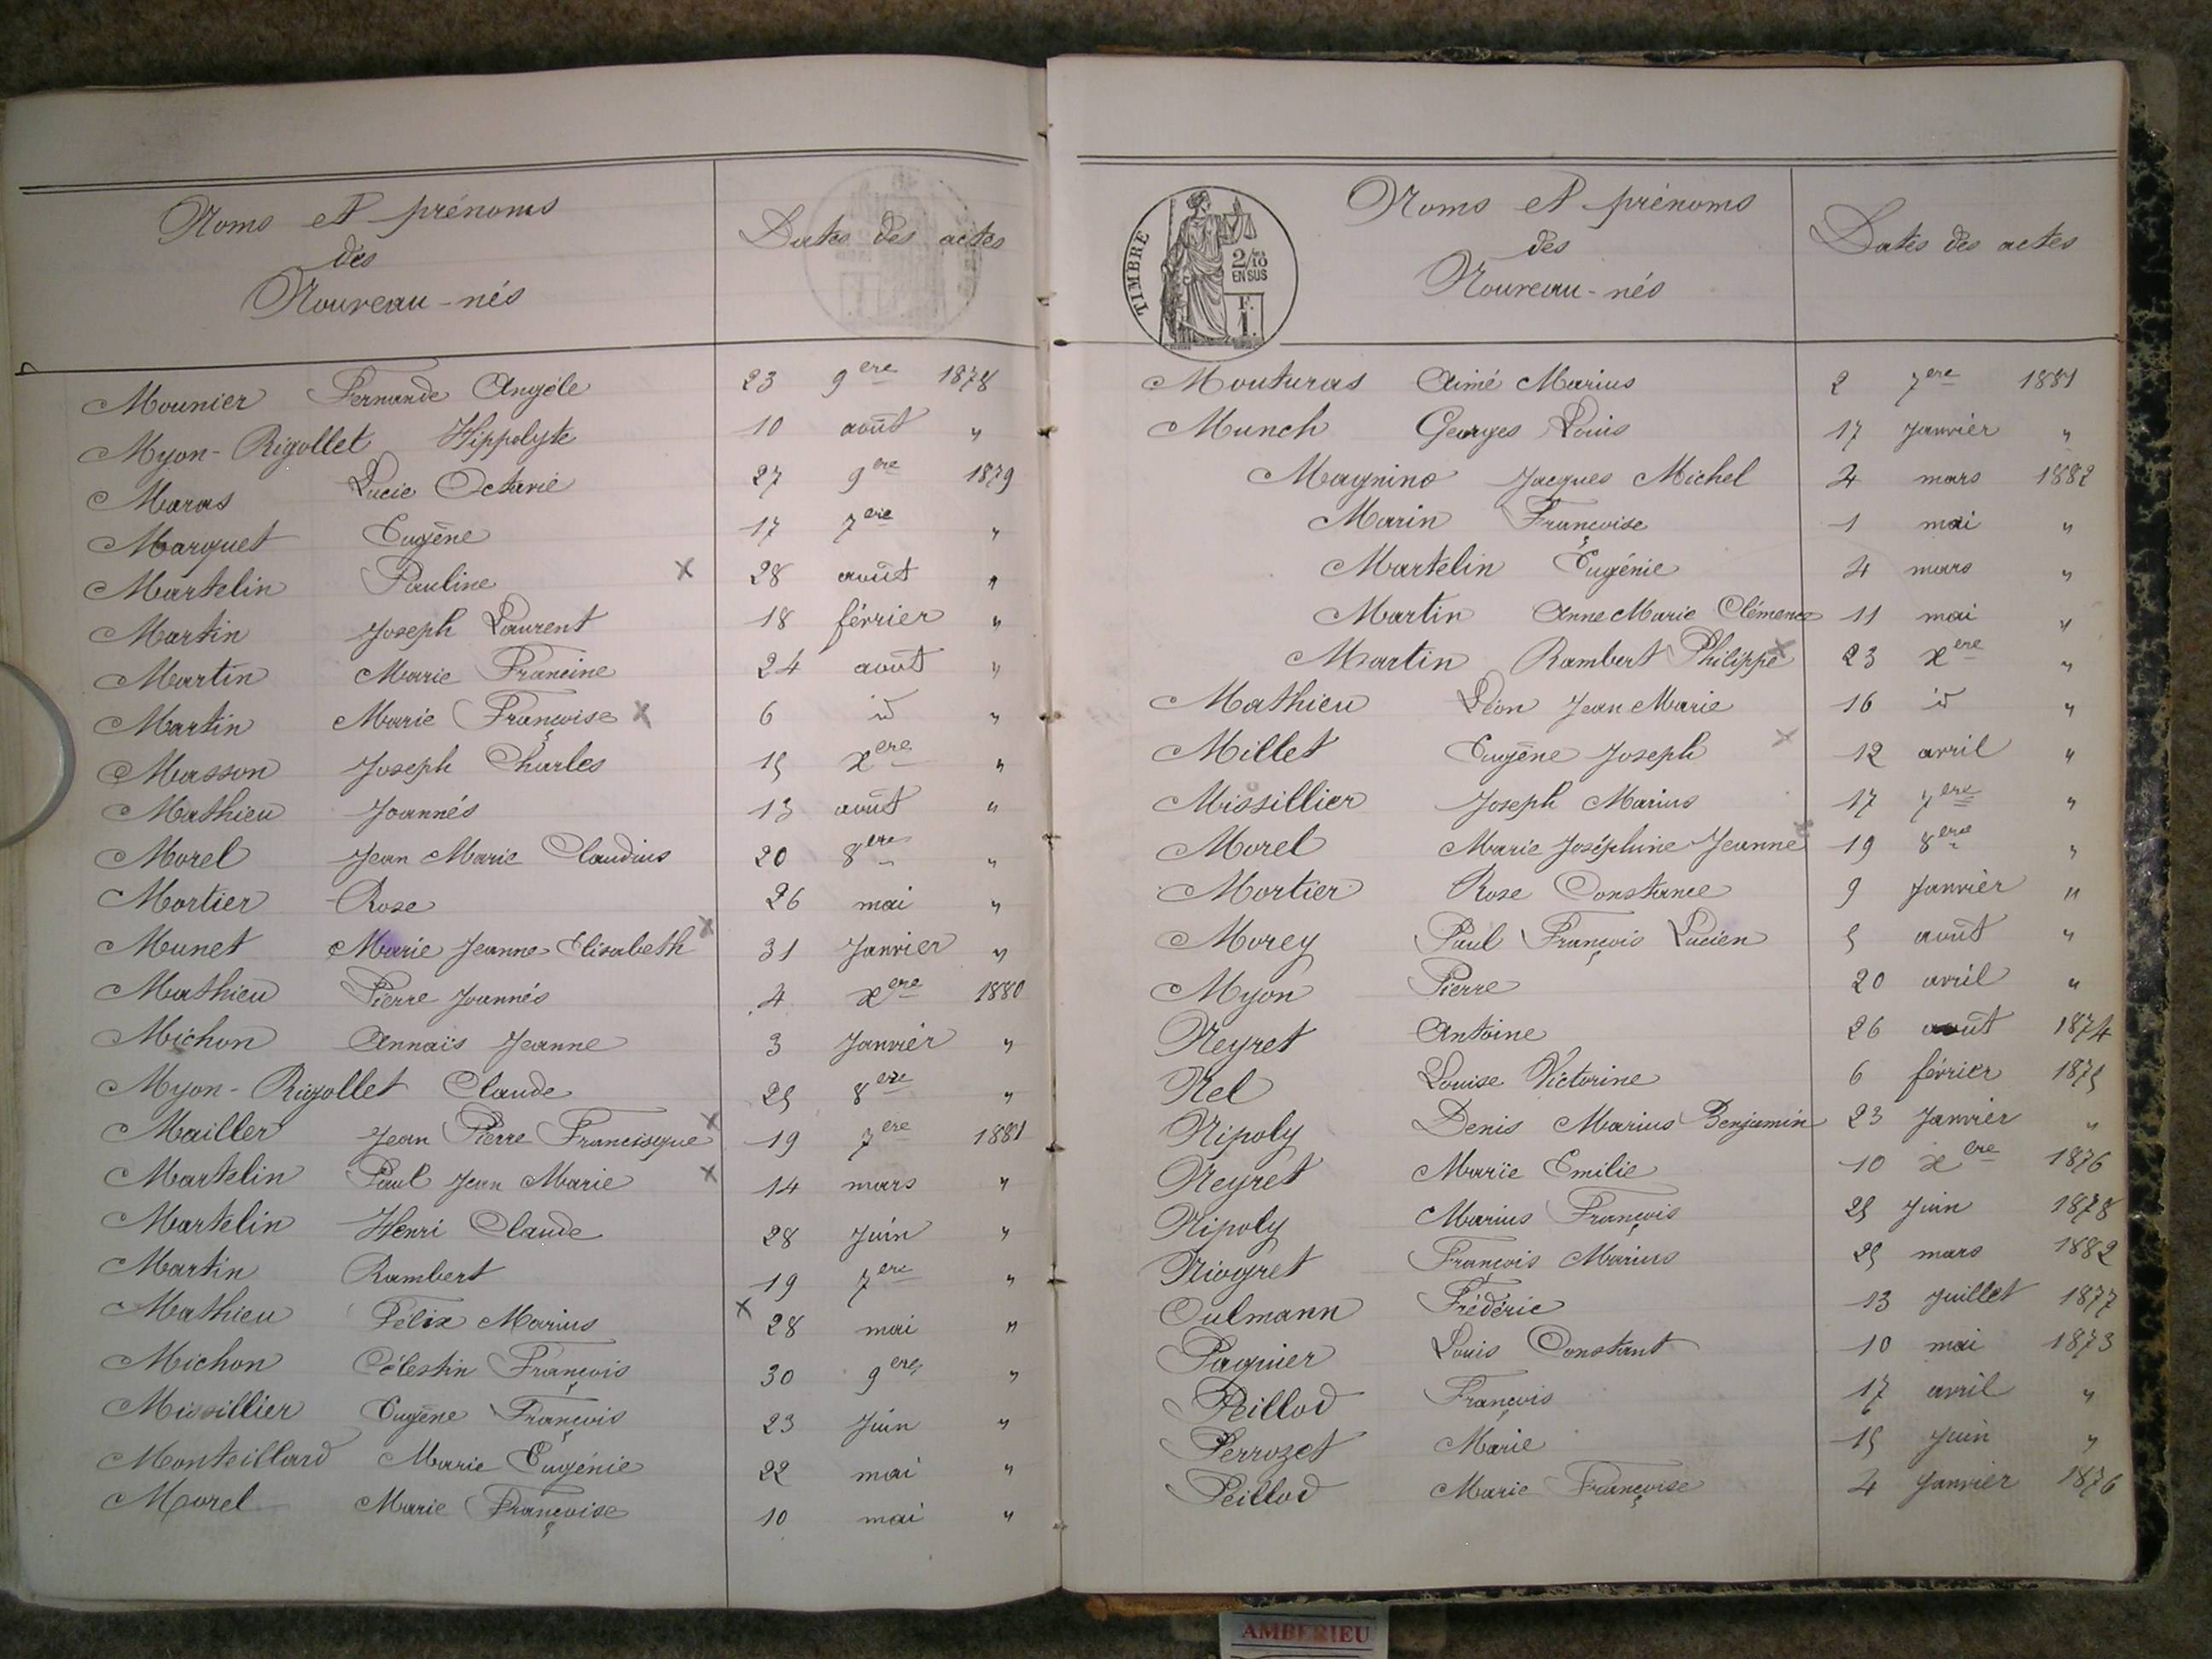 Noms et prénoms
des
Nouveau-nés
Dates des actes
Mounier Fernande Angéle 23 9ere 1878
Myon-Rigollet Hippolyte 10 août "
Maras Lucie Octavie 27 9ere 1879
Marquet Eugène 17 7ere "
Martelin Pauline x 28 août "
Martin Joseph Laurent 18 février "
Martin Marie Francine 24 août "
Martin Marie Françoise x 6 id "
Masson Joseph Charles 15 xere "
Mathieu Joannés 13 août "
Morel Jean Marie Claudius 20 8ere "
Mortier Rose 26 mai "
Munet Marie Jeanne-Elisabeth x 31 Janvier "
Mathieu Pierre Joannés 4 xere 1880
Michon Annaïs Jeanne 3 Janvier "
Myon-Rigollet Claude 25 8ere "
Mailler Jean Pierre Francisque x 19 7ere 1881
Martelin Paul Jean Marie x 14 mars "
Martelin Henri Claude 28 Juin "
Martin Rambert 19 7ere "
Mathieu Félix Marius x 28 mai "
Michon Célestin François 30 9ere "
Missillier Eugène François 23 Juin "
Monteillard Marie Eugénie 22 mai "
Morel Marie Françoise 10 mai "
TIMBRE
2/10
EN SUS
F.
1.
Noms et prénoms
des
Nouveau-nés
Dates des actes
Mouturas Aimé Marius 2 7ere 1881
Munch Georges Louis 17 Janvier "
Magnino Jacques Michel 4 mars 1882
Marin Françoise 1 mai "
Martelin Eugénie 4 mars "
Martin Anne Marie Clémence 11 mai "
Martin Rambert Philippe x 23 xere "
Mathieu Léon Jean Marie 16 id "
Millet Eugène Joseph x 12 avril "
Missillier Joseph Marius 17 7ere "
Morel Marie Joséphine Jeanne x 19 8ere "
Mortier Rose Constance 9 Janvier "
Morey Paul François Lucien 5 août "
Myon Pierre 20 avril "
Neyret Antoine 26 août 1874
Nel Louise Victorine 6 février 1875
Nipoly Denis Marius Benjamin 23 Janvier "
Neyret Marie Emilie 10 xere 1876
Nipoly Marius François 25 Juin 1878
Niogret François Marius 25 mars 1882
Oulmann Frédéric 13 Juillet 1877
Pagnier Louis Constant 10 mai 1873
Peillod François 17 avril "
Perrozet Marie 15 Juin "
Peillod Marie Françoise 4 Janvier 1876
AMBERIEU